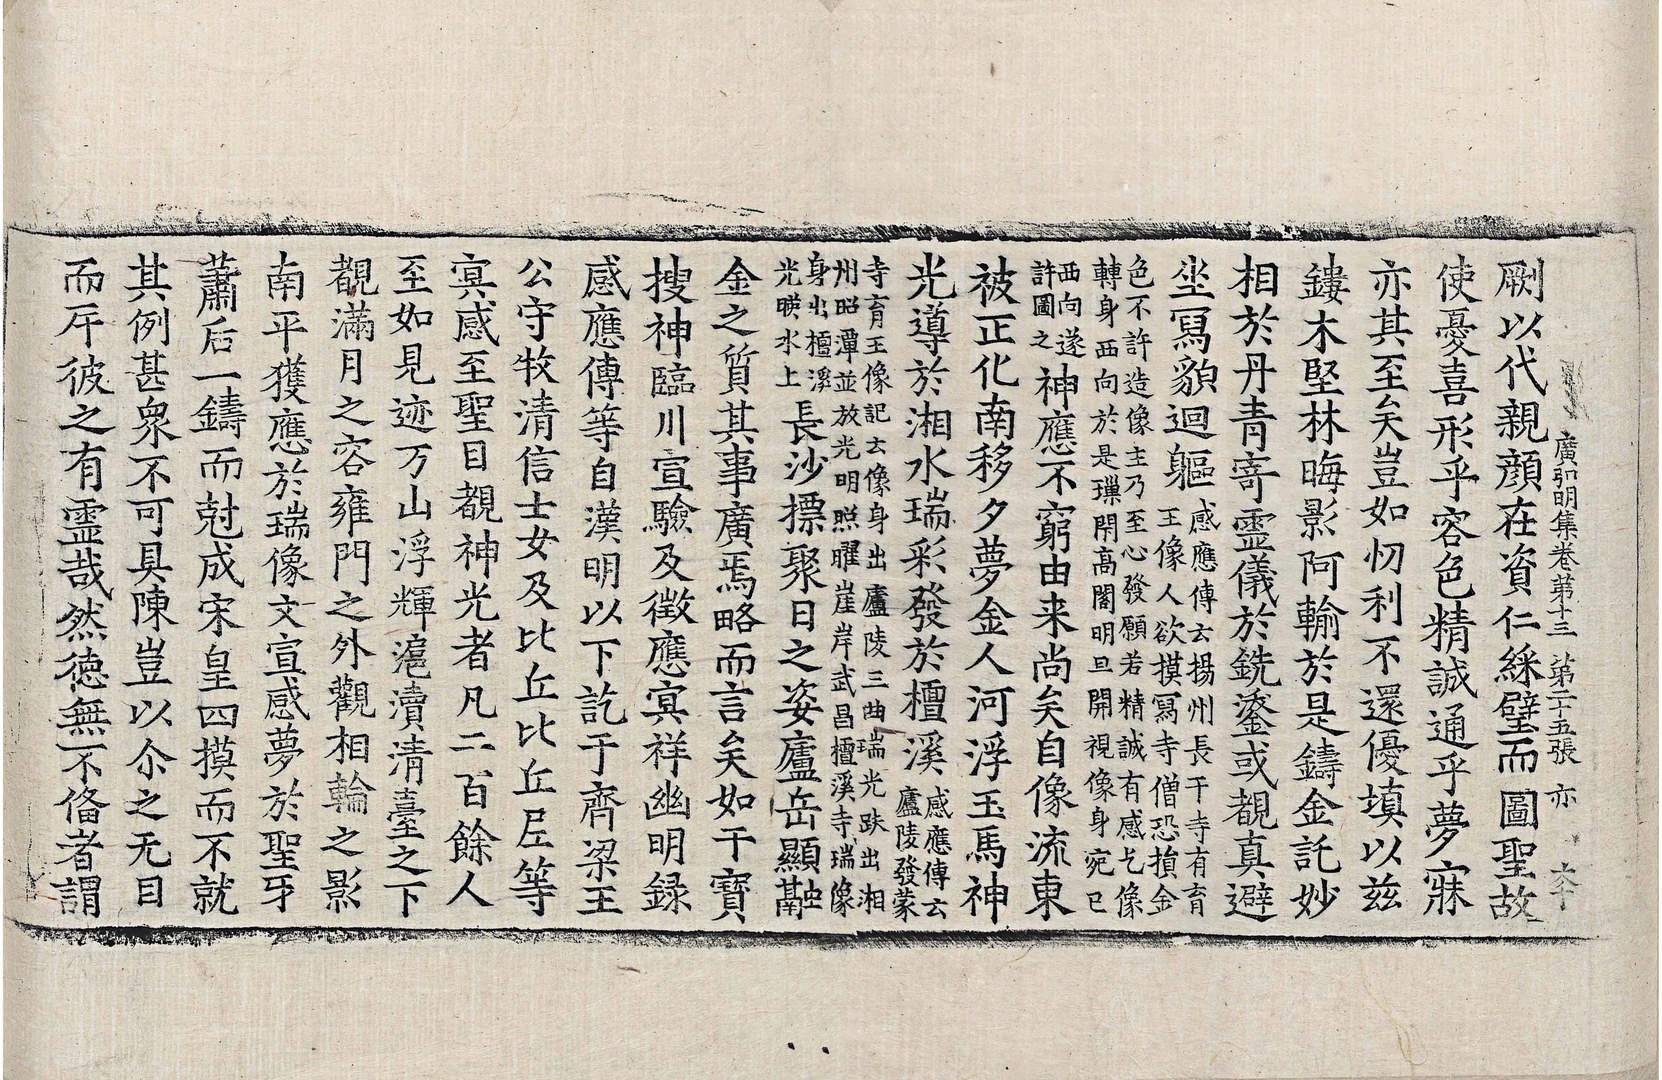 廣弘明集卷第十三 第二十五張 亦
劂以代親顔在資仁綵璧而圖聖故
使憂喜形乎容色精誠通乎夢寐
亦其至矣豈如忉利不還優填以茲
鏤木堅林晦影阿輸於是鑄金託妙
相於丹青寄靈儀於銑鎏或覩真避
坐寫貌迴軀感應傳云揚州長干寺有育
王像人欲摸寫寺僧恐損金
色不許造像主乃至心發願若精誠有感乞像
轉身西向於是𤩽閇高閣明旦開視像身宛已
西向遂
許圖之神應不窮由来尚矣自像流東
被正化南移夕夢金人河浮玉馬神
光導於湘水瑞彩發於檀溪感應傳云
廬陵發蒙
寺育王像記云像身出廬陵三曲瑞光趺出湘
州昭潭並放光明照曜崖岸武昌檀溪寺瑞像
身出檀溪
光暎水上長沙摽聚日之姿廬岳顯融
金之質其事廣焉略而言矣如干寶
搜神臨川宣驗及徵應㝠祥幽明録
感應傳等自漢明以下訖于齊梁王
公守牧清信士女及比丘比丘尼等
㝠感至聖目覩神光者凡二百餘人
至如見迹万山浮輝滬瀆清臺之下
覩滿月之容雍門之外觀相輪之影
南平獲應於瑞像文宣感夢於聖牙
蕭后一鑄而尅成宋皇四摸而不就
其例甚衆不可具陳豈以尒之无目
而斥彼之有靈哉然徳無不俻者謂